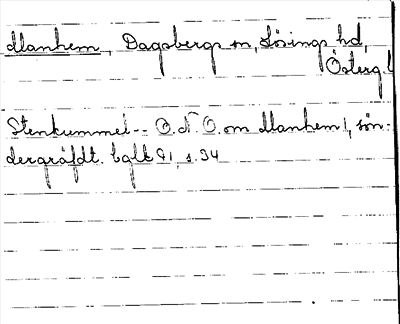 Manhem, Dagsbergs sn, Lösings hd,
Österg.l
Stenkummel -- O.N.O. om Manhem!, sön-
dergräfdt.